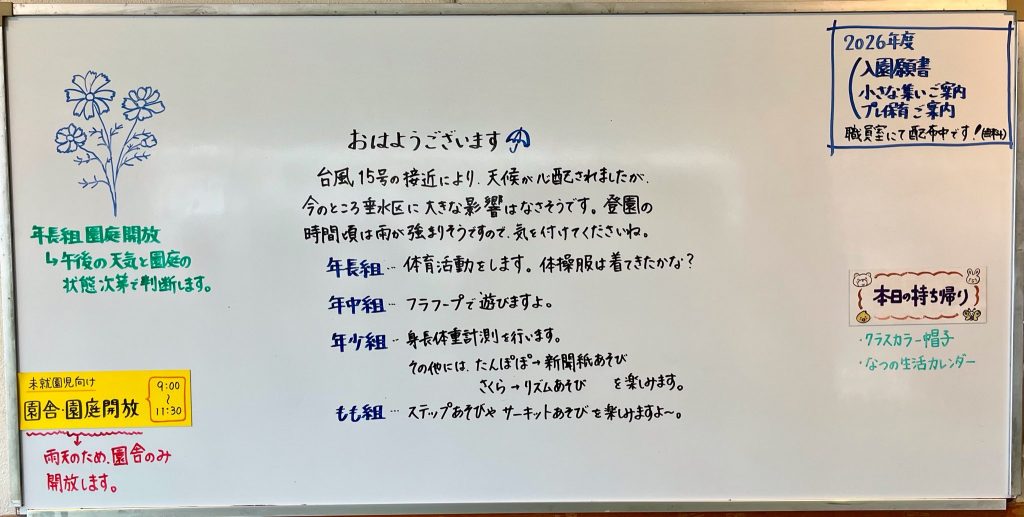 おはようございます
台風15号の接近により、天候が心配されましたが、
今のところ垂水区に大きな影響はなさそうです。登園の
時間頃は雨が強まりそうですので、気を付けてくださいね。
年長組… 体育活動をします。体操服は着てきたかな?
年中組… フラフープで遊びますよ。
年少組… 身長体重計測を行います。
その他には、たんぽぽ→新聞紙あそび
さくら→リズムあそび を楽しみます。
もも組… ステップあそびや サーキットあそびを楽しみますよ〜。
年長組園庭開放
↳午後の天気と園庭の
状態次第で判断します。
未就園児向け
園舎・園庭開放
9:00
〜
11:30
雨天のため、園舎のみ
開放します。
2026年度
入園願書
小さな集いご案内
プレ保育ご案内
職員室にて配布中です!(無料)
本日の持ち帰り
・クラスカラー帽子
・なつの生活カレンダー